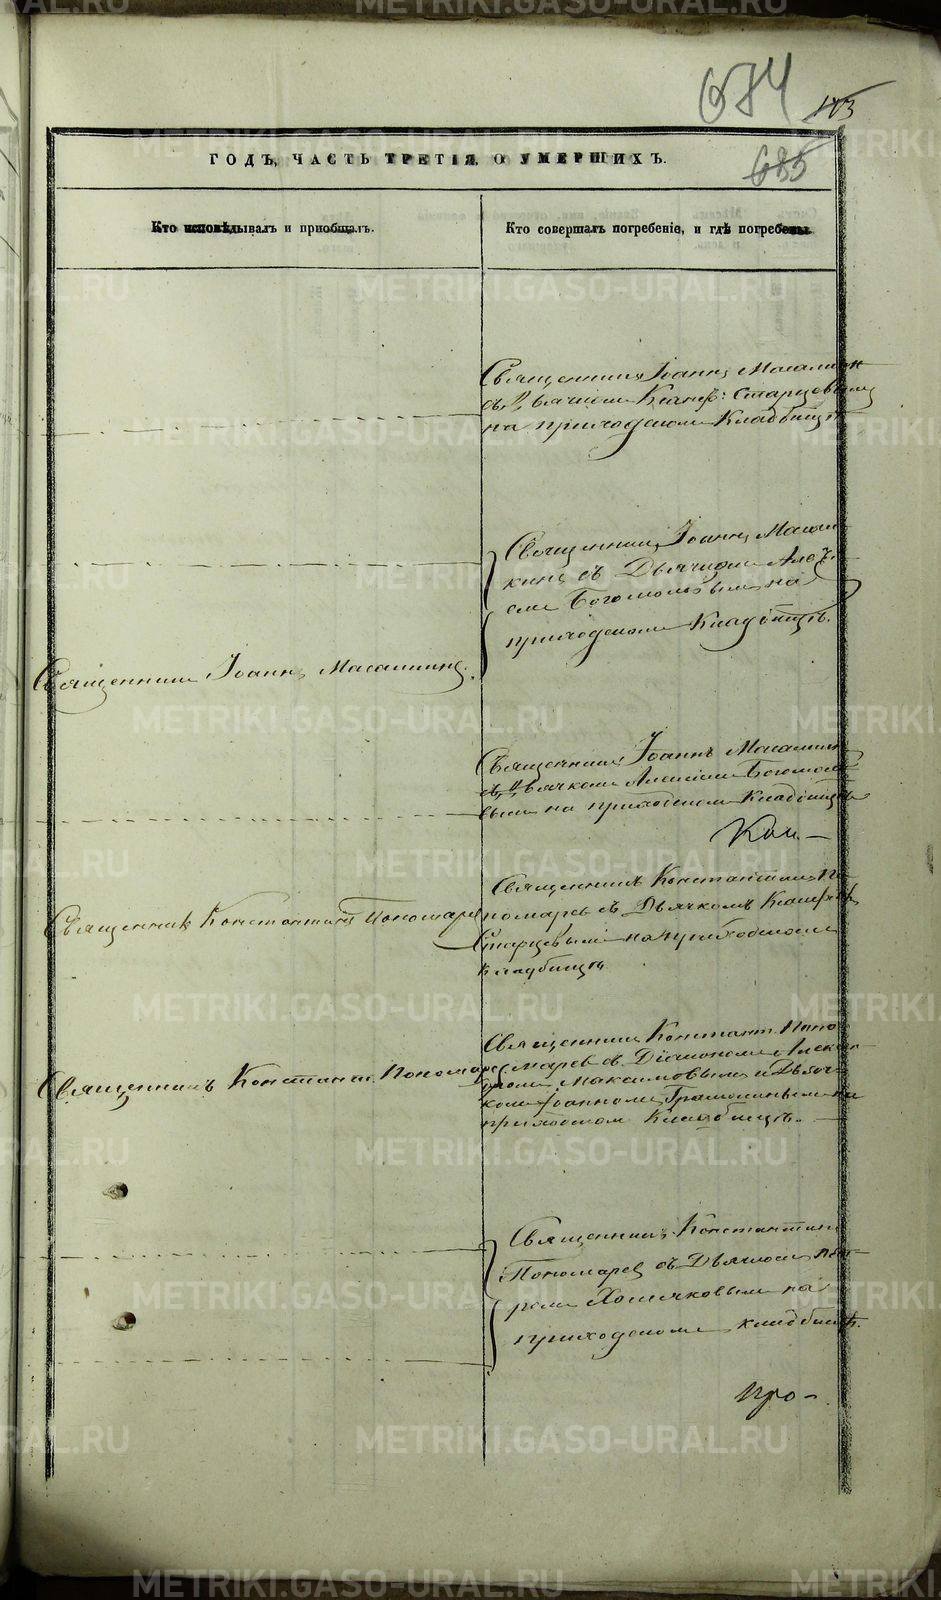 684
103
685
ГОДЪ, ЧАСТЬ ТРЕТІЯ, О УМЕРШИХЪ.
Кто исповѣдывалъ и приобщалъ.
Кто совершалъ погребеніе, и гдѣ погребены.
Священникъ Іоаннъ Масалкин
съ Дьячкомъ Ксеноф: Старцовымъ
на приходскомъ Кладбищѣ
Священникъ Іоаннъ Масал
кинъ съ Дьячкомъ Алек
Богомоловымъ на
приходскомъ Кладбищѣ.
Священникъ Іоаннъ
Священникъ Іоаннъ
съ Дьячкомъ Алексіемъ Богомоло
вымъ на приходскомъ Кладбищѣ
Священникъ Константинъ По
номаревъ съ Дьячкомъ
Старцовымъ на приходскомъ
кладбищѣ
Священникъ Константинъ Пономарев
Священникъ Констант. Поно
маревъ съ Діакономъ Алексан
дромъ Максимовымъ и Дьяч
комъ Іоанномъ на
приходском Кладбищѣ.
Священникъ Констант. Пономарев
Священникъ Константинъ
Пономаревъ съ Дьячкомъ Пет
ромъ Хомячковымъ на
приходскомъ кладбищѣ.
Про-
METRIKI.GASO-URAL.RU